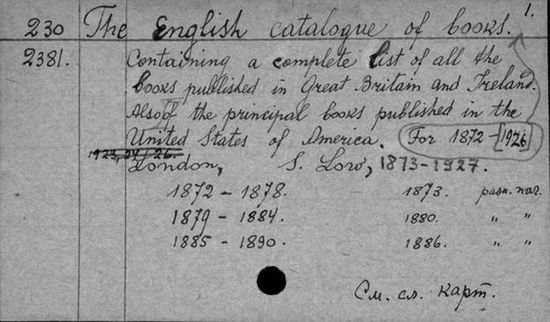 1.
230 The English catalogue of books.
2381. Containing a complete list of all the
books published in Great Britain and Ireland.
Also of the principal books published in the
United States of America. For 1872-1926
London, S. Low, 1873-1927.
1872 - 1878. 1873. разн. паг.
1879 - 1884. 1880. " "
1885 - 1890. 1886. " "
См. сл. карт.